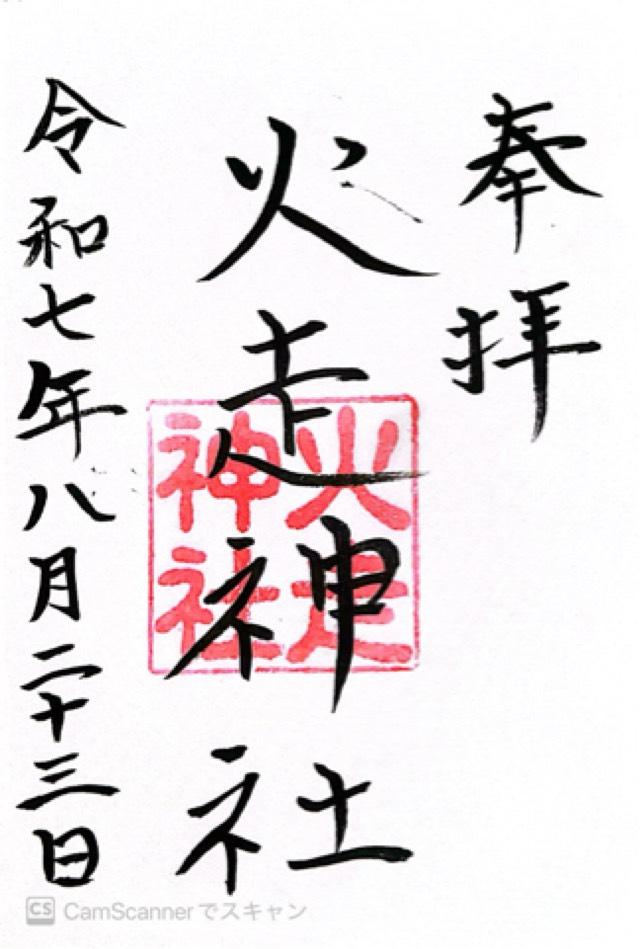 奉拝
火走神社
火走
神社
令和七年八月二十三日
CS CamScannerでスキャン